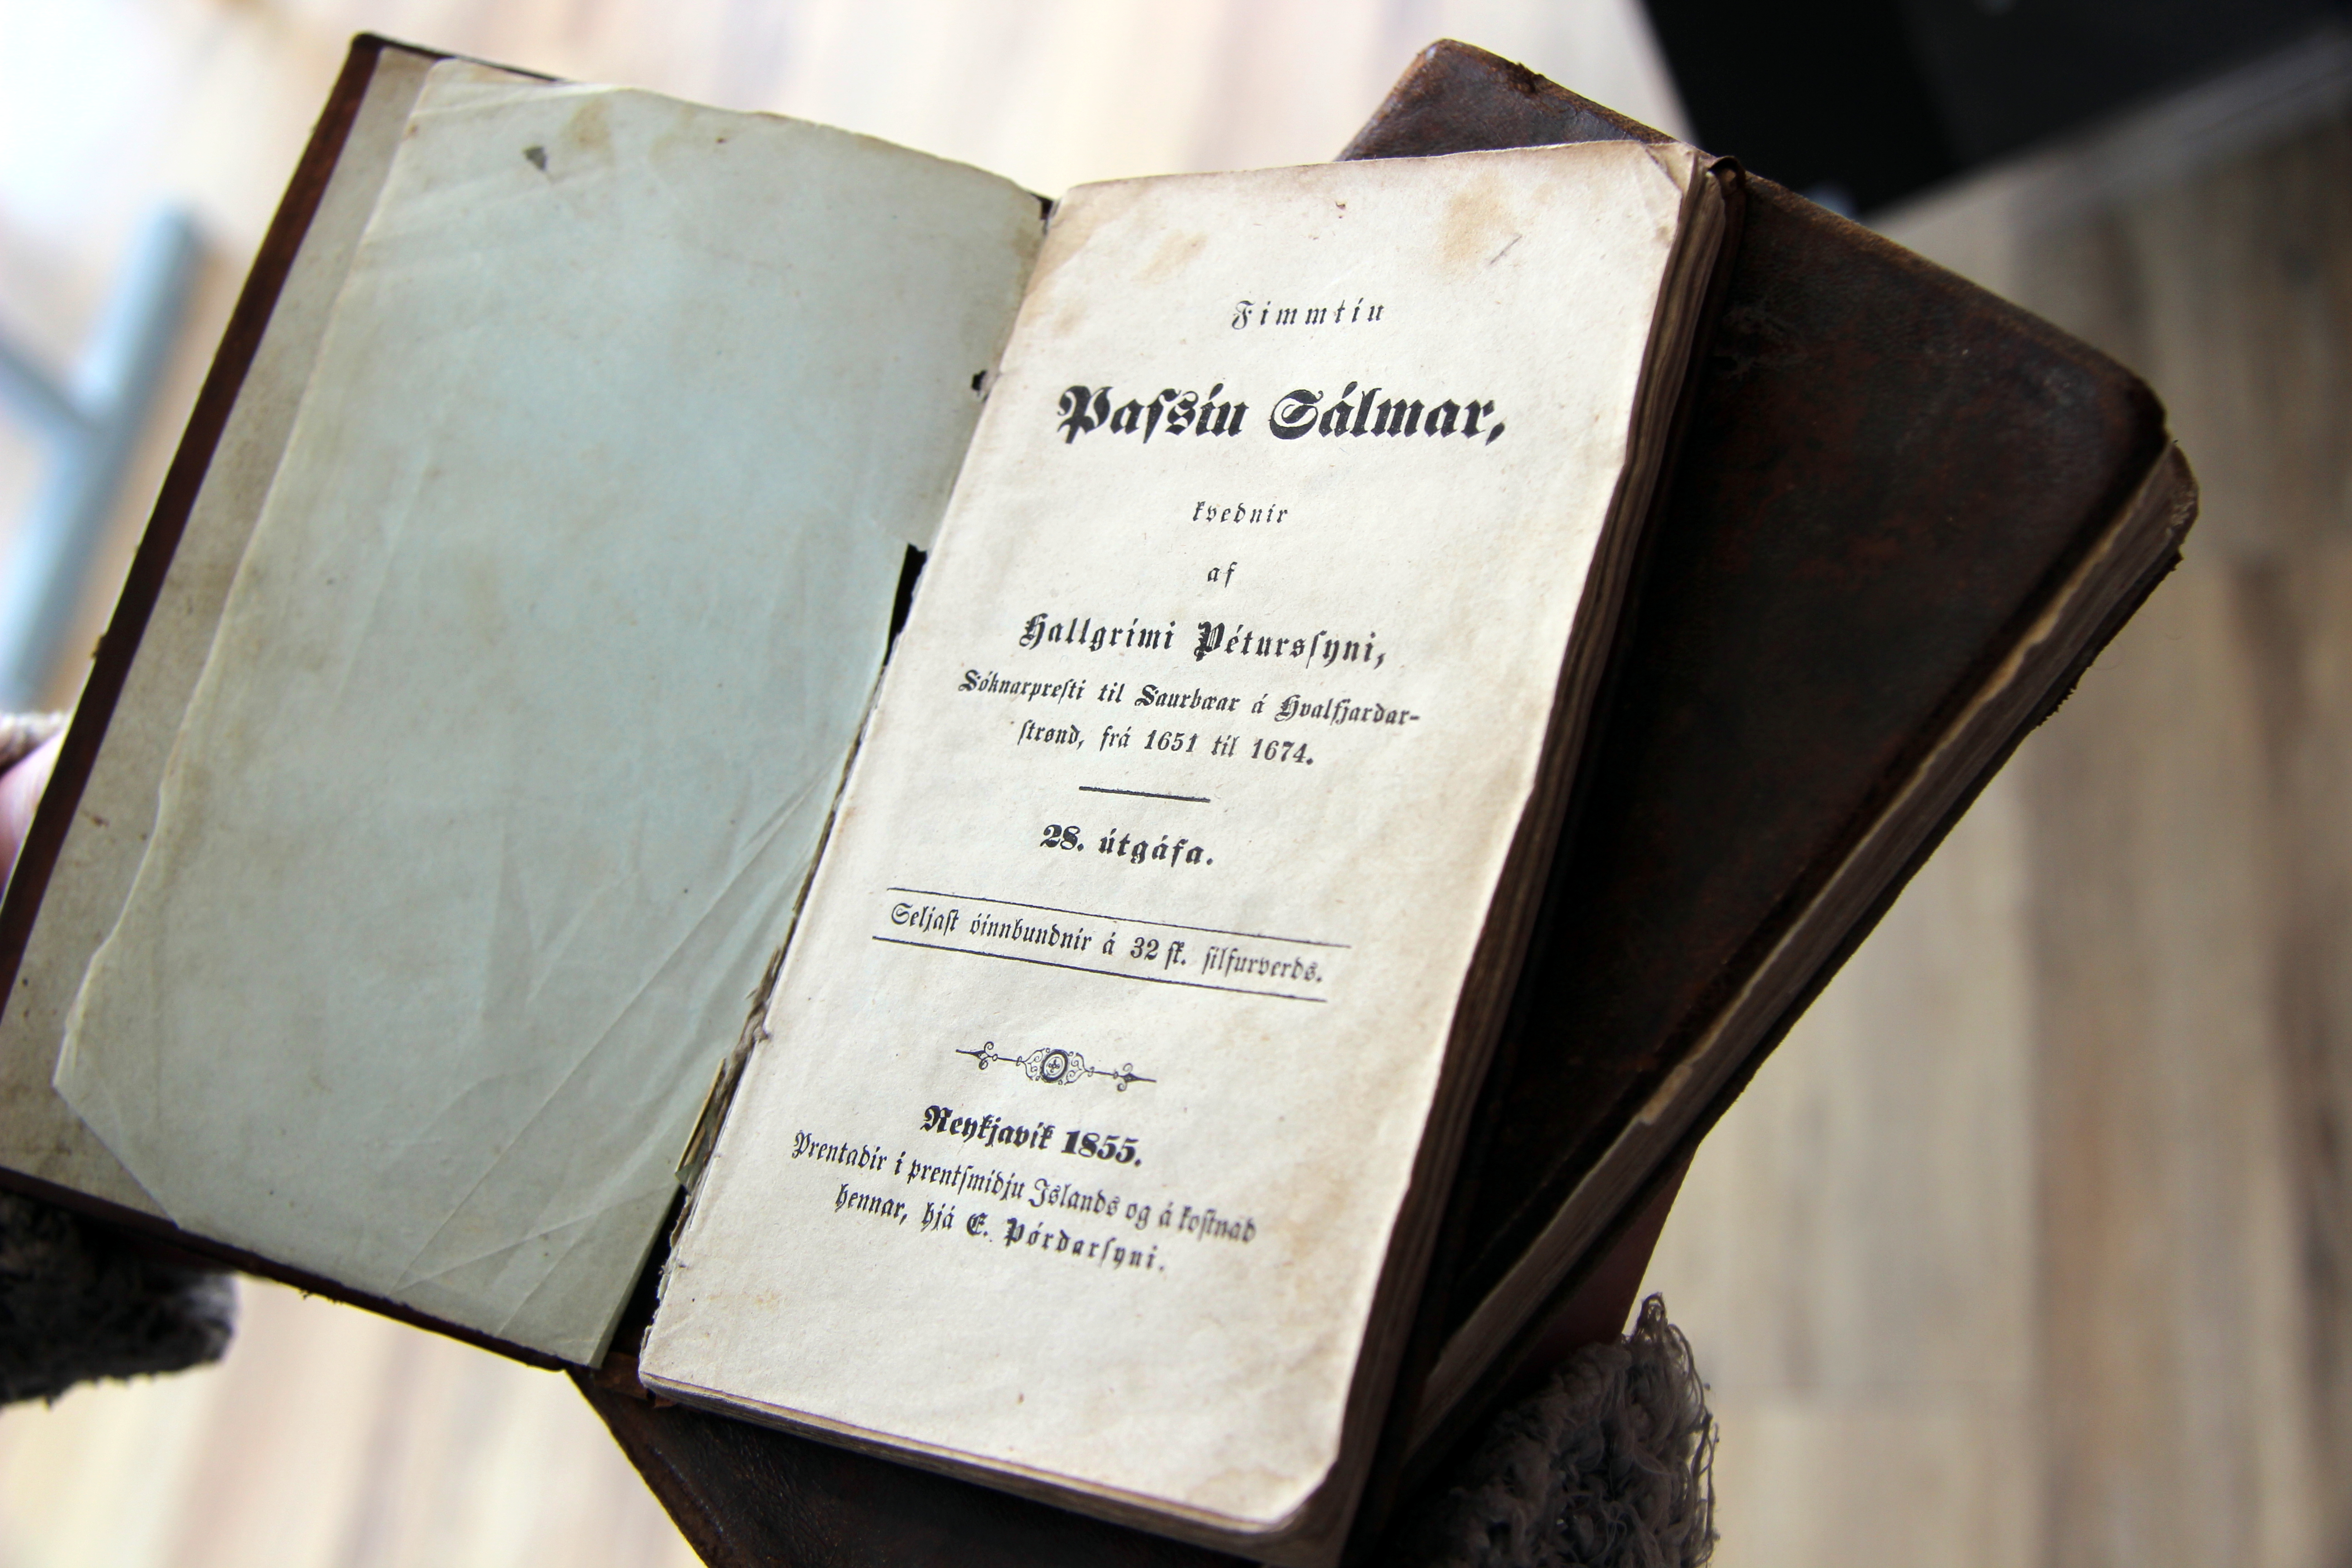 Fimmtíu
Paſsíu Sálmar,
kveðnir
af
Hallgrími Péturſsyni,
Sóknarpreſti til Saurbæar á Hvalfjarðar-
ſtrønd, frá 1651 til 1674.
28. útgáfa.
Seljaſt óinnbundnir á 32 ſk. ſilfurverðs.
Reykjavík 1855.
Prentaðir í prentſmiðju Íslands og á koſtnað
hennar, hjá E. Þórðarſyni.